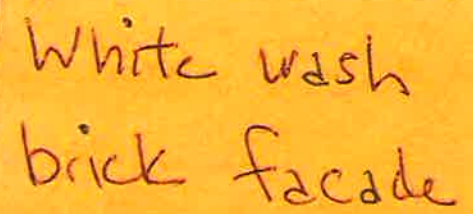 White wash
brick facade